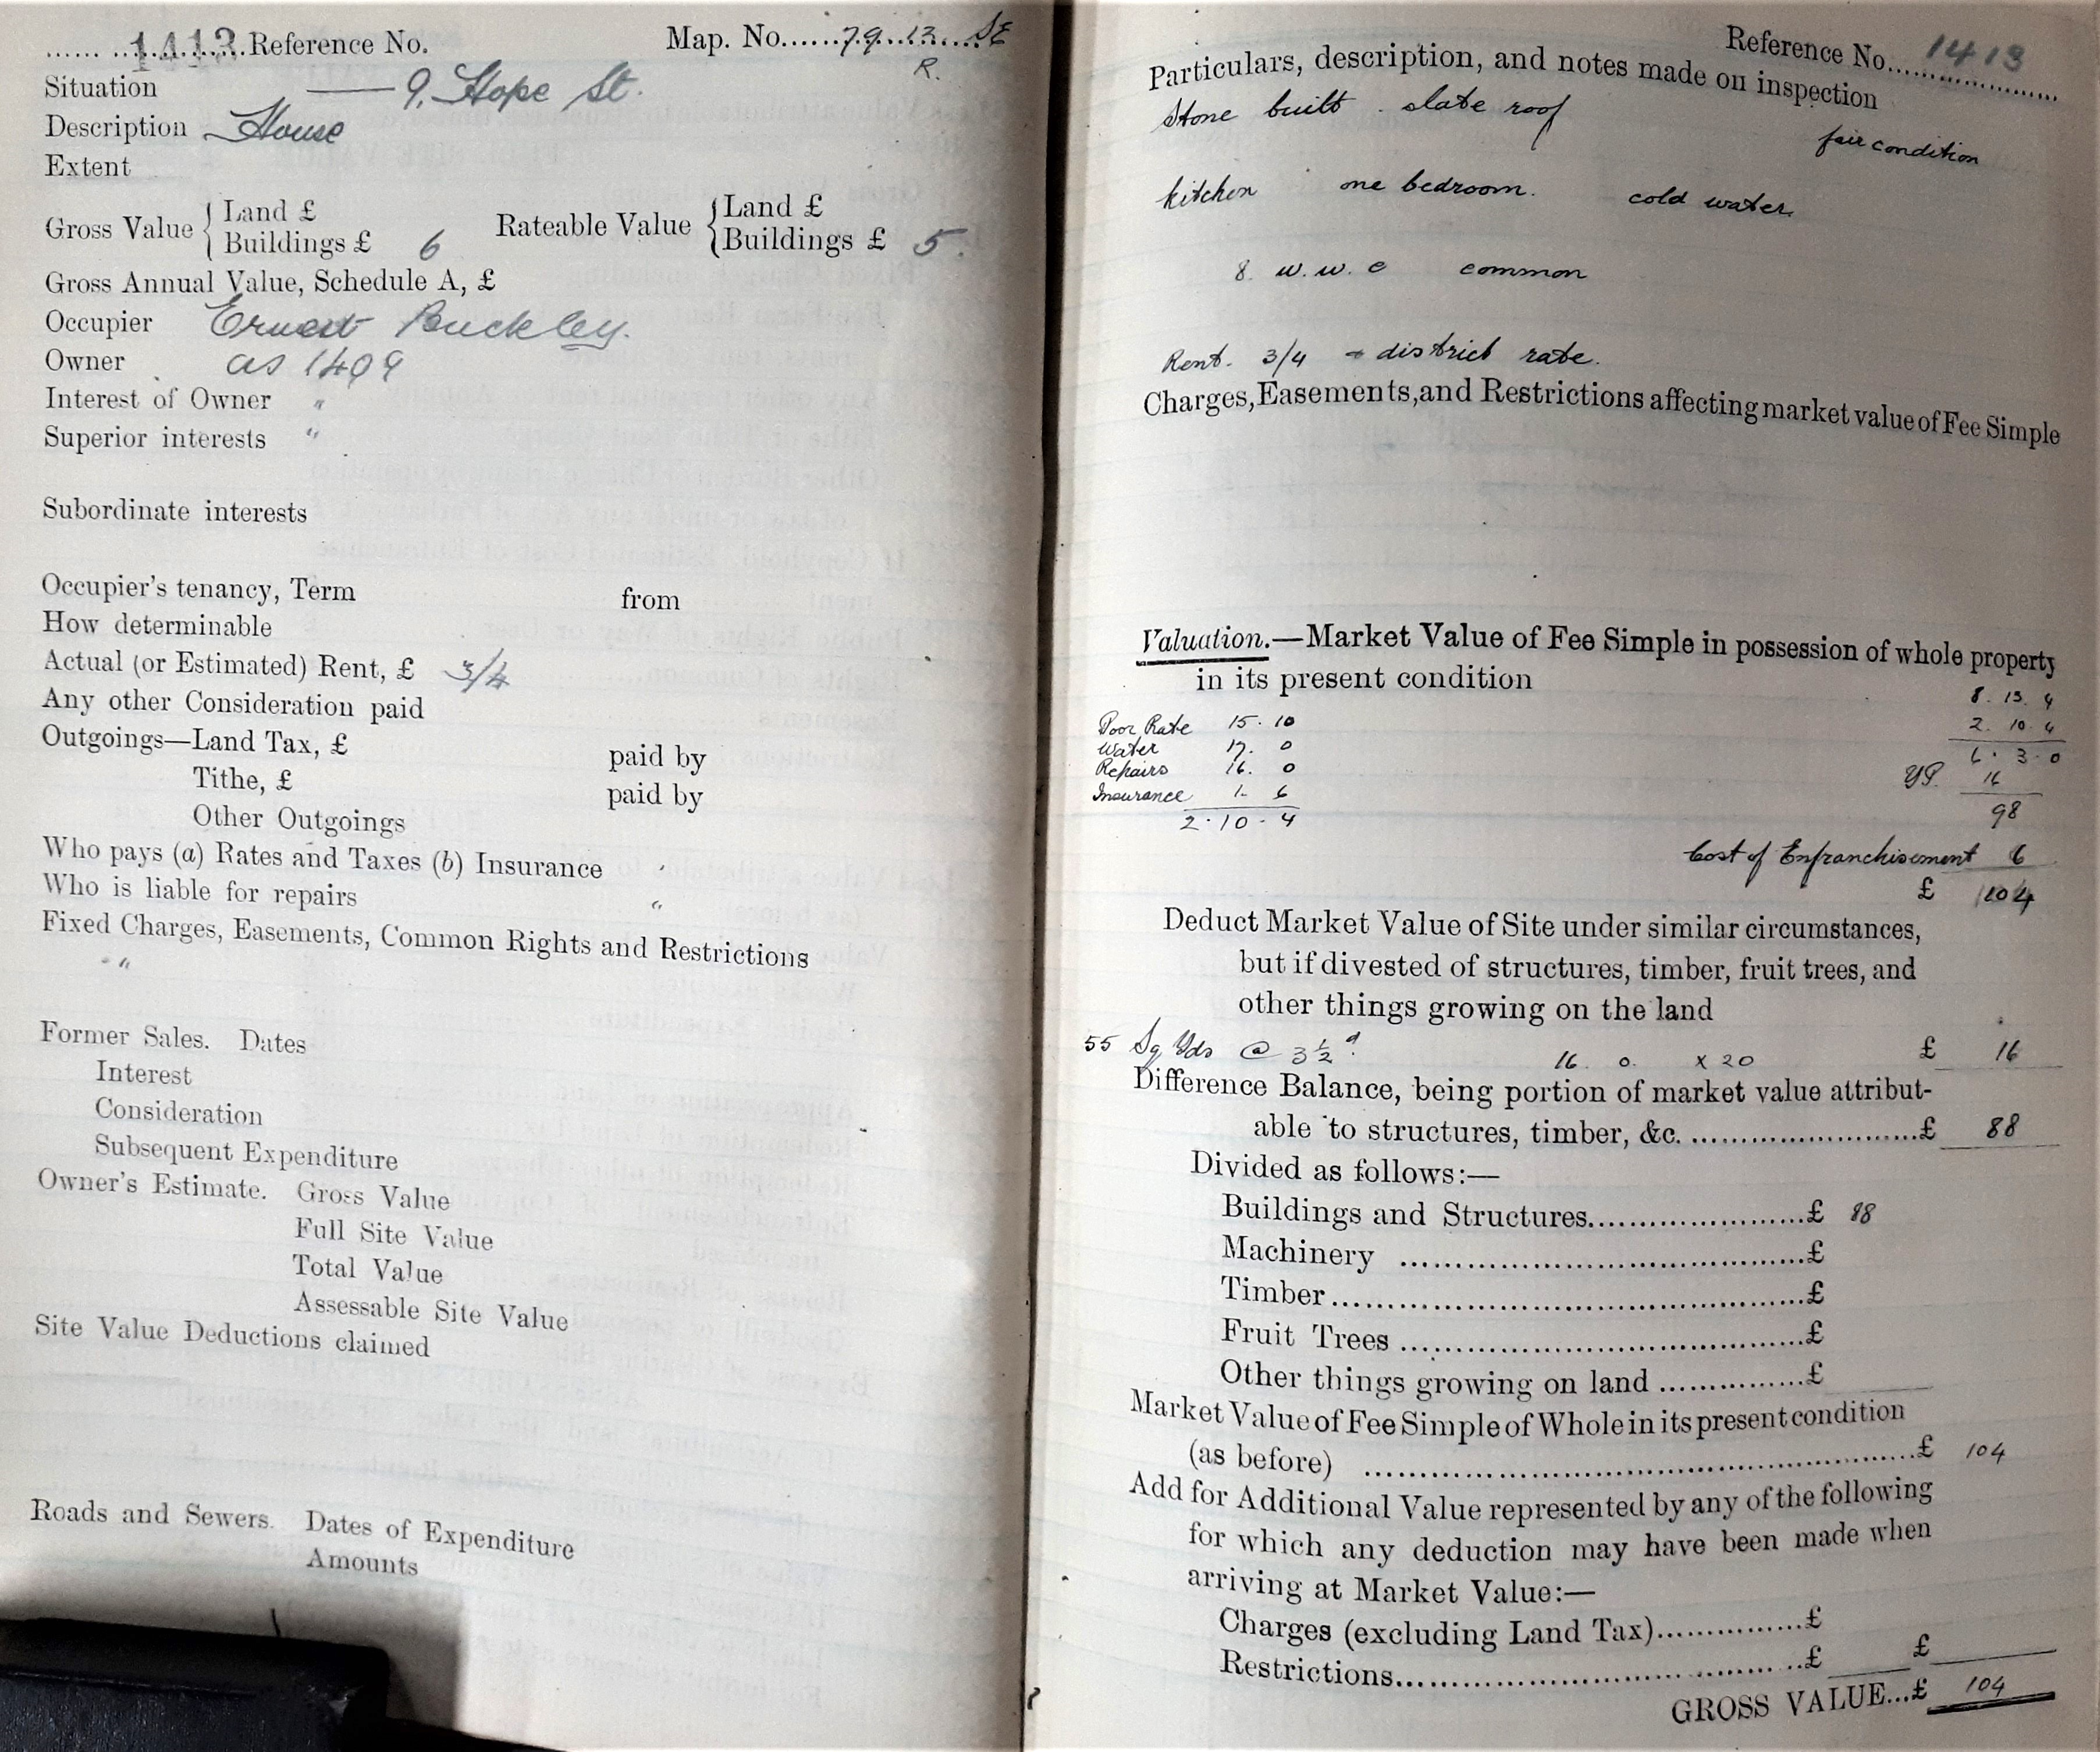 ...... 1413 Reference No. Map. No......79.13....SE
R.
Situation — 9, Hope St.
Description House
Extent
Gross Value { Land £
Buildings £ 6
Rateable Value { Land £
Buildings £ 5.
Gross Annual Value, Schedule A, £
Occupier Ernest Buckley.
Owner as 1409
Interest of Owner "
Superior interests "
Subordinate interests
Occupier's tenancy, Term from
How determinable
Actual (or Estimated) Rent, £ 3/4
Any other Consideration paid
Outgoings—Land Tax, £ paid by
Tithe, £ paid by
Other Outgoings
Who pays (a) Rates and Taxes (b) Insurance "
Who is liable for repairs "
Fixed Charges, Easements, Common Rights and Restrictions
"
Former Sales. Dates
Interest
Consideration
Subsequent Expenditure
Owner's Estimate. Gross Value
Full Site Value
Total Value
Assessable Site Value
Site Value Deductions claimed
Roads and Sewers. Dates of Expenditure
Amounts
Reference No. 1413
Particulars, description, and notes made on inspection
Stone built . slate roof
fair condition
kitchen one bedroom. cold water.
8. w.w.c common
Rent. 3/4 + district rate.
Charges, Easements, and Restrictions affecting market value of Fee Simple
Valuation.—Market Value of Fee Simple in possession of whole property
in its present condition
8. 13. 4
Poor Rate 15. 10
2. 10. 4
Water 17. 0
6. 3. 0
Repairs 16. 0
YP. 16
Insurance 1. 6
98
2. 10. 4
Cost of Enfranchisement 6
£ 104
Deduct Market Value of Site under similar circumstances,
but if divested of structures, timber, fruit trees, and
other things growing on the land
55 Sq Yds @ 3½d. 16. 0. x 20 £ 16
Difference Balance, being portion of market value attribut-
able to structures, timber, &c. ........................£ 88
Divided as follows:—
Buildings and Structures......................£ 88
Machinery ........................................£
Timber..............................................£
Fruit Trees ......................................£
Other things growing on land ...............£
Market Value of Fee Simple of Whole in its present condition
(as before) ......................................................£ 104
Add for Additional Value represented by any of the following
for which any deduction may have been made when
arriving at Market Value:—
Charges (excluding Land Tax)...............£
Restrictions........................................£ £
GROSS VALUE...£ 104